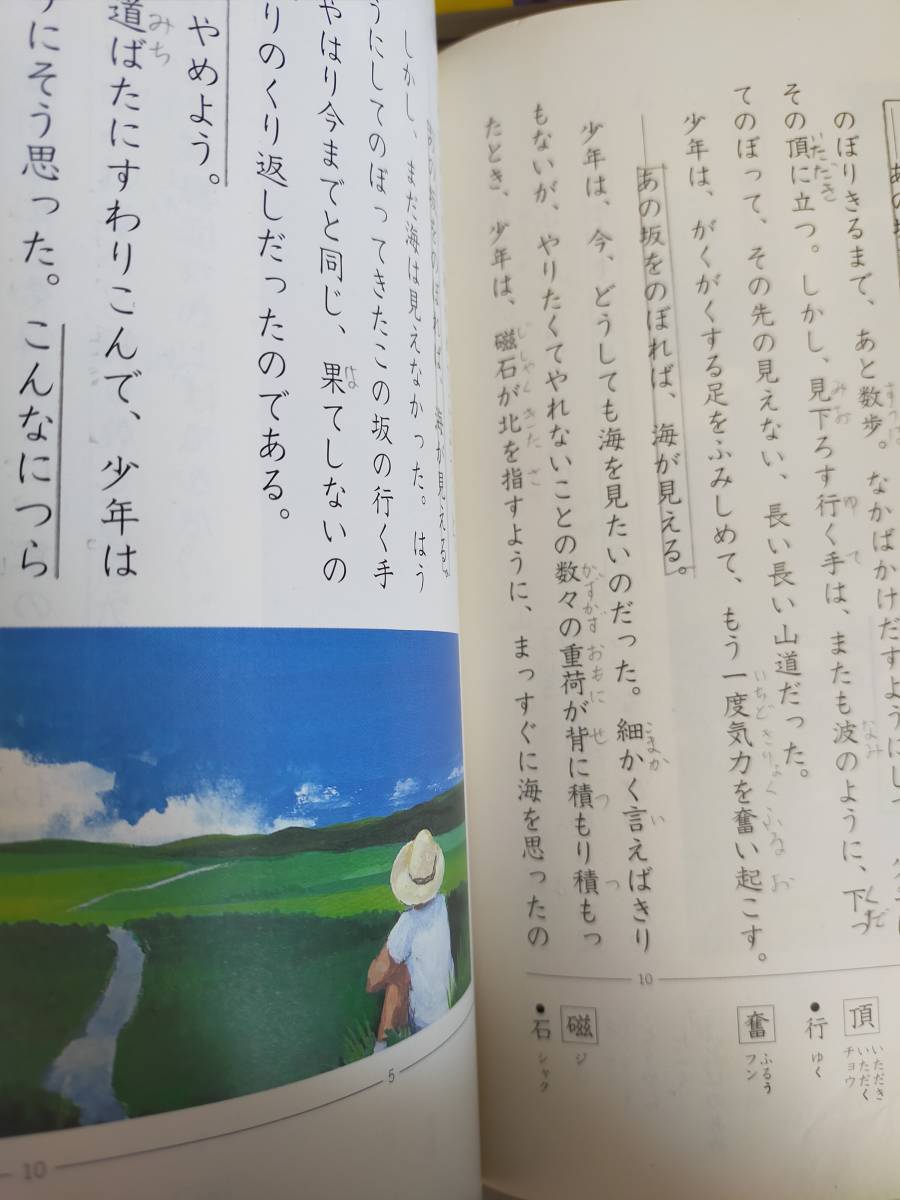 のぼりきるまで、あと数歩。なかばかけだすようにして
その頂に立つ。しかし、見下ろす行く手は、またも波のように、下っ
てのぼって、その先の見えない、長い長い山道だった。
少年は、がくがくする足をふみしめて、もう一度気力を奮い起こす。
――あの坂をのぼれば、海が見える。
少年は、今、どうしても海を見たいのだった。細かく言えばきり
もないが、やりたくてやれないことの数々の重荷が背に積もり積もっ
たとき、少年は、磁石が北を指すように、まっすぐに海を思ったの
10
頂 いただき いただく チョウ
●行 ゆく
奮 ふるう フン
磁 ジ
●石 シャク
海が見える。
しかし、まだ海は見えなかった。はう
うにしてのぼってきたこの坂の行く手
やはり今までと同じ、果てしないの
りのくり返しだったのである。
やめよう。
道ばたにすわりこんで、少年は
にそう思った。こんなにつら
5
10